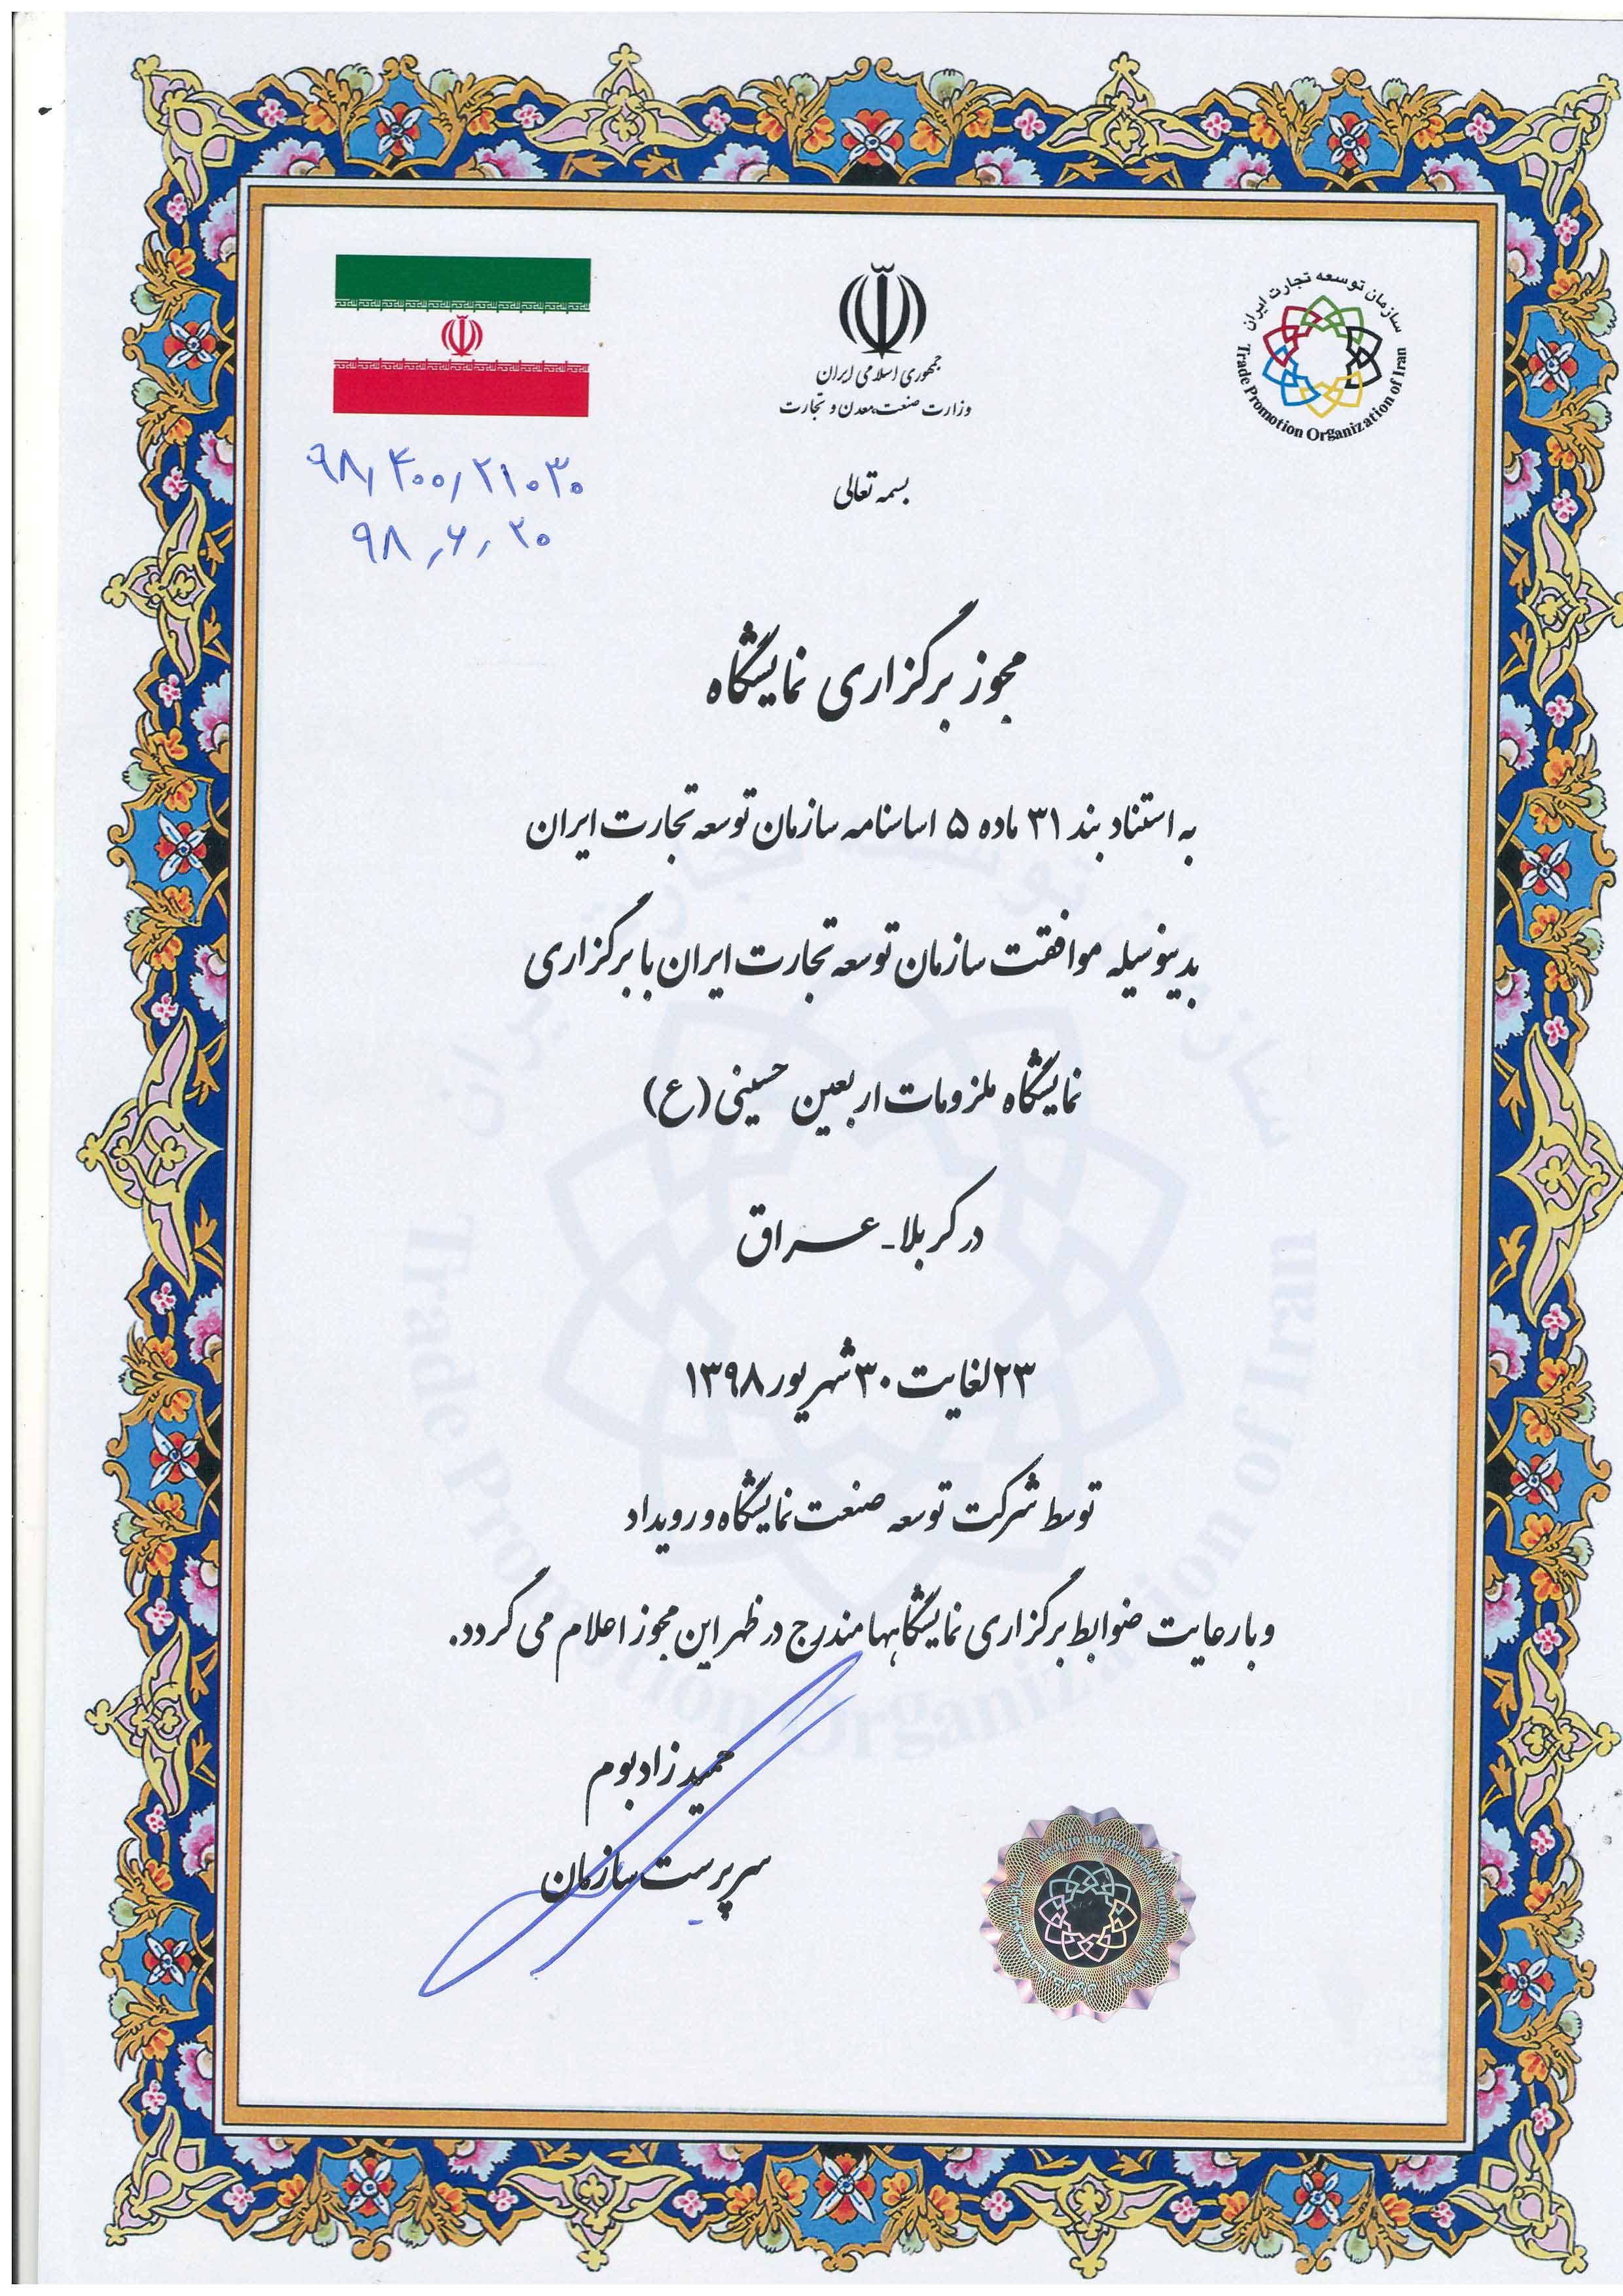 سازمان توسعه تجارت ایران
Trade Promotion Organization of Iran
جمهوری اسلامی ایران
وزارت صنعت، معدن و تجارت
۹۸٫۴۰۰٫۲۱۰۳۰
۹۸٫۶٫۲۰
بسمه تعالی
مجوز برگزاری نمایشگاه
به استناد بند ۳۱ ماده ۵ اساسنامه سازمان توسعه تجارت ایران
بدینوسیله موافقت سازمان توسعه تجارت ایران با برگزاری
نمایشگاه ملزومات اربعین حسینی (ع)
در کربلا - عراق
۲۳ لغایت ۳۰ شهریور ۱۳۹۸
توسط شرکت توسعه صنعت نمایشگاه و رویداد
و با رعایت ضوابط برگزاری نمایشگاهها مندرج در ظهر این مجوز اعلام می گردد.
حمید زادبوم
سرپرست سازمان